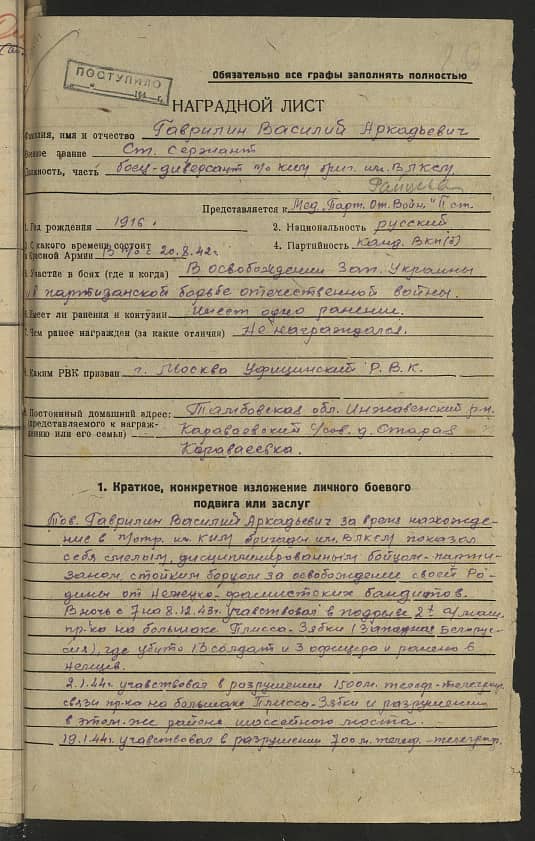 Обязательно все графы заполнять полностью
ПОСТУПИЛО
194 г.
НАГРАДНОЙ ЛИСТ
Фамилия, имя и отчество Гаврилин Василий Аркадьевич
Военное звание Ст. Сержант
Должность, часть боец-диверсант п/о КИМ бриг. им. ВЛКСМ
Представляется к Мед. Парт. От. Войн. "II ст.
1. Год рождения 1916г. 2. Национальность русский
3. С какого времени состоит
в Красной Армии В п/о с 20.8.42г. 4. Партийность Канд. ВКП(б)
5. Участие в боях (где и когда) В освобождении Зап. Украины
и в партизанской борьбе отечественной войны.
6. Имеет ли ранения и контузии Имеет одно ранение.
7. Чем ранее награжден (за какие отличия) Не награждался.
8. Каким РВК призван г. Москва Р.В.К.
9. Постоянный домашний адрес: Тамбовская обл. Инжавенский р-н
(представляемого к награж-
дению или его семьи) Караваевский с/сов. д. Старая
Караваевка.
1. Краткое, конкретное изложение личного боевого
подвига или заслуг
Тов. Гаврилин Василий Аркадьевич за время нахожде-
ние в п/отр. им. КИМ бригады им. ВЛКСМ показал
себя смелым, дисциплинированным бойцом-парти-
заном, стойким борцом за освобождение своей Ро-
дины от немецко-фашистских бандитов.
В ночь с 7 на 8.12.43г. учавствовал в подрыве 2х а/маш.
пр-ка на большаке Плисса-Зябки (Западная Белорус-
сия), где убито 13 солдат и 3 офицера и ранено 6
немцев.
2.1.44г. учавствовал в разрушении 1500м. телеф-телеграф.
связи пр-ка на большаке Плисса-Зябки и разрушении
в этом-же районе шоссейного моста.
19.1.44г. учавствовал в разрушении 700м. телеф.-телеграф.